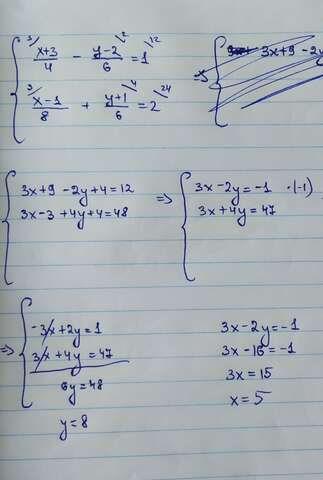 { ³/ (x+3)/4 - (y-2)/6 ²/ = 1 /12
{ ³/ (x-1)/8 + (y+1)/6 ⁴/ = 2 /24
=> { 3x+9-2y
{ 3x+9-2y+4=12 => { 3x-2y=-1 ·(-1)
{ 3x-3+4y+4=48 { 3x+4y=47
=> { -3x+2y=1
{ 3x+4y=47
6y=48
y=8
3x-2y=-1
3x-16=-1
3x=15
x=5